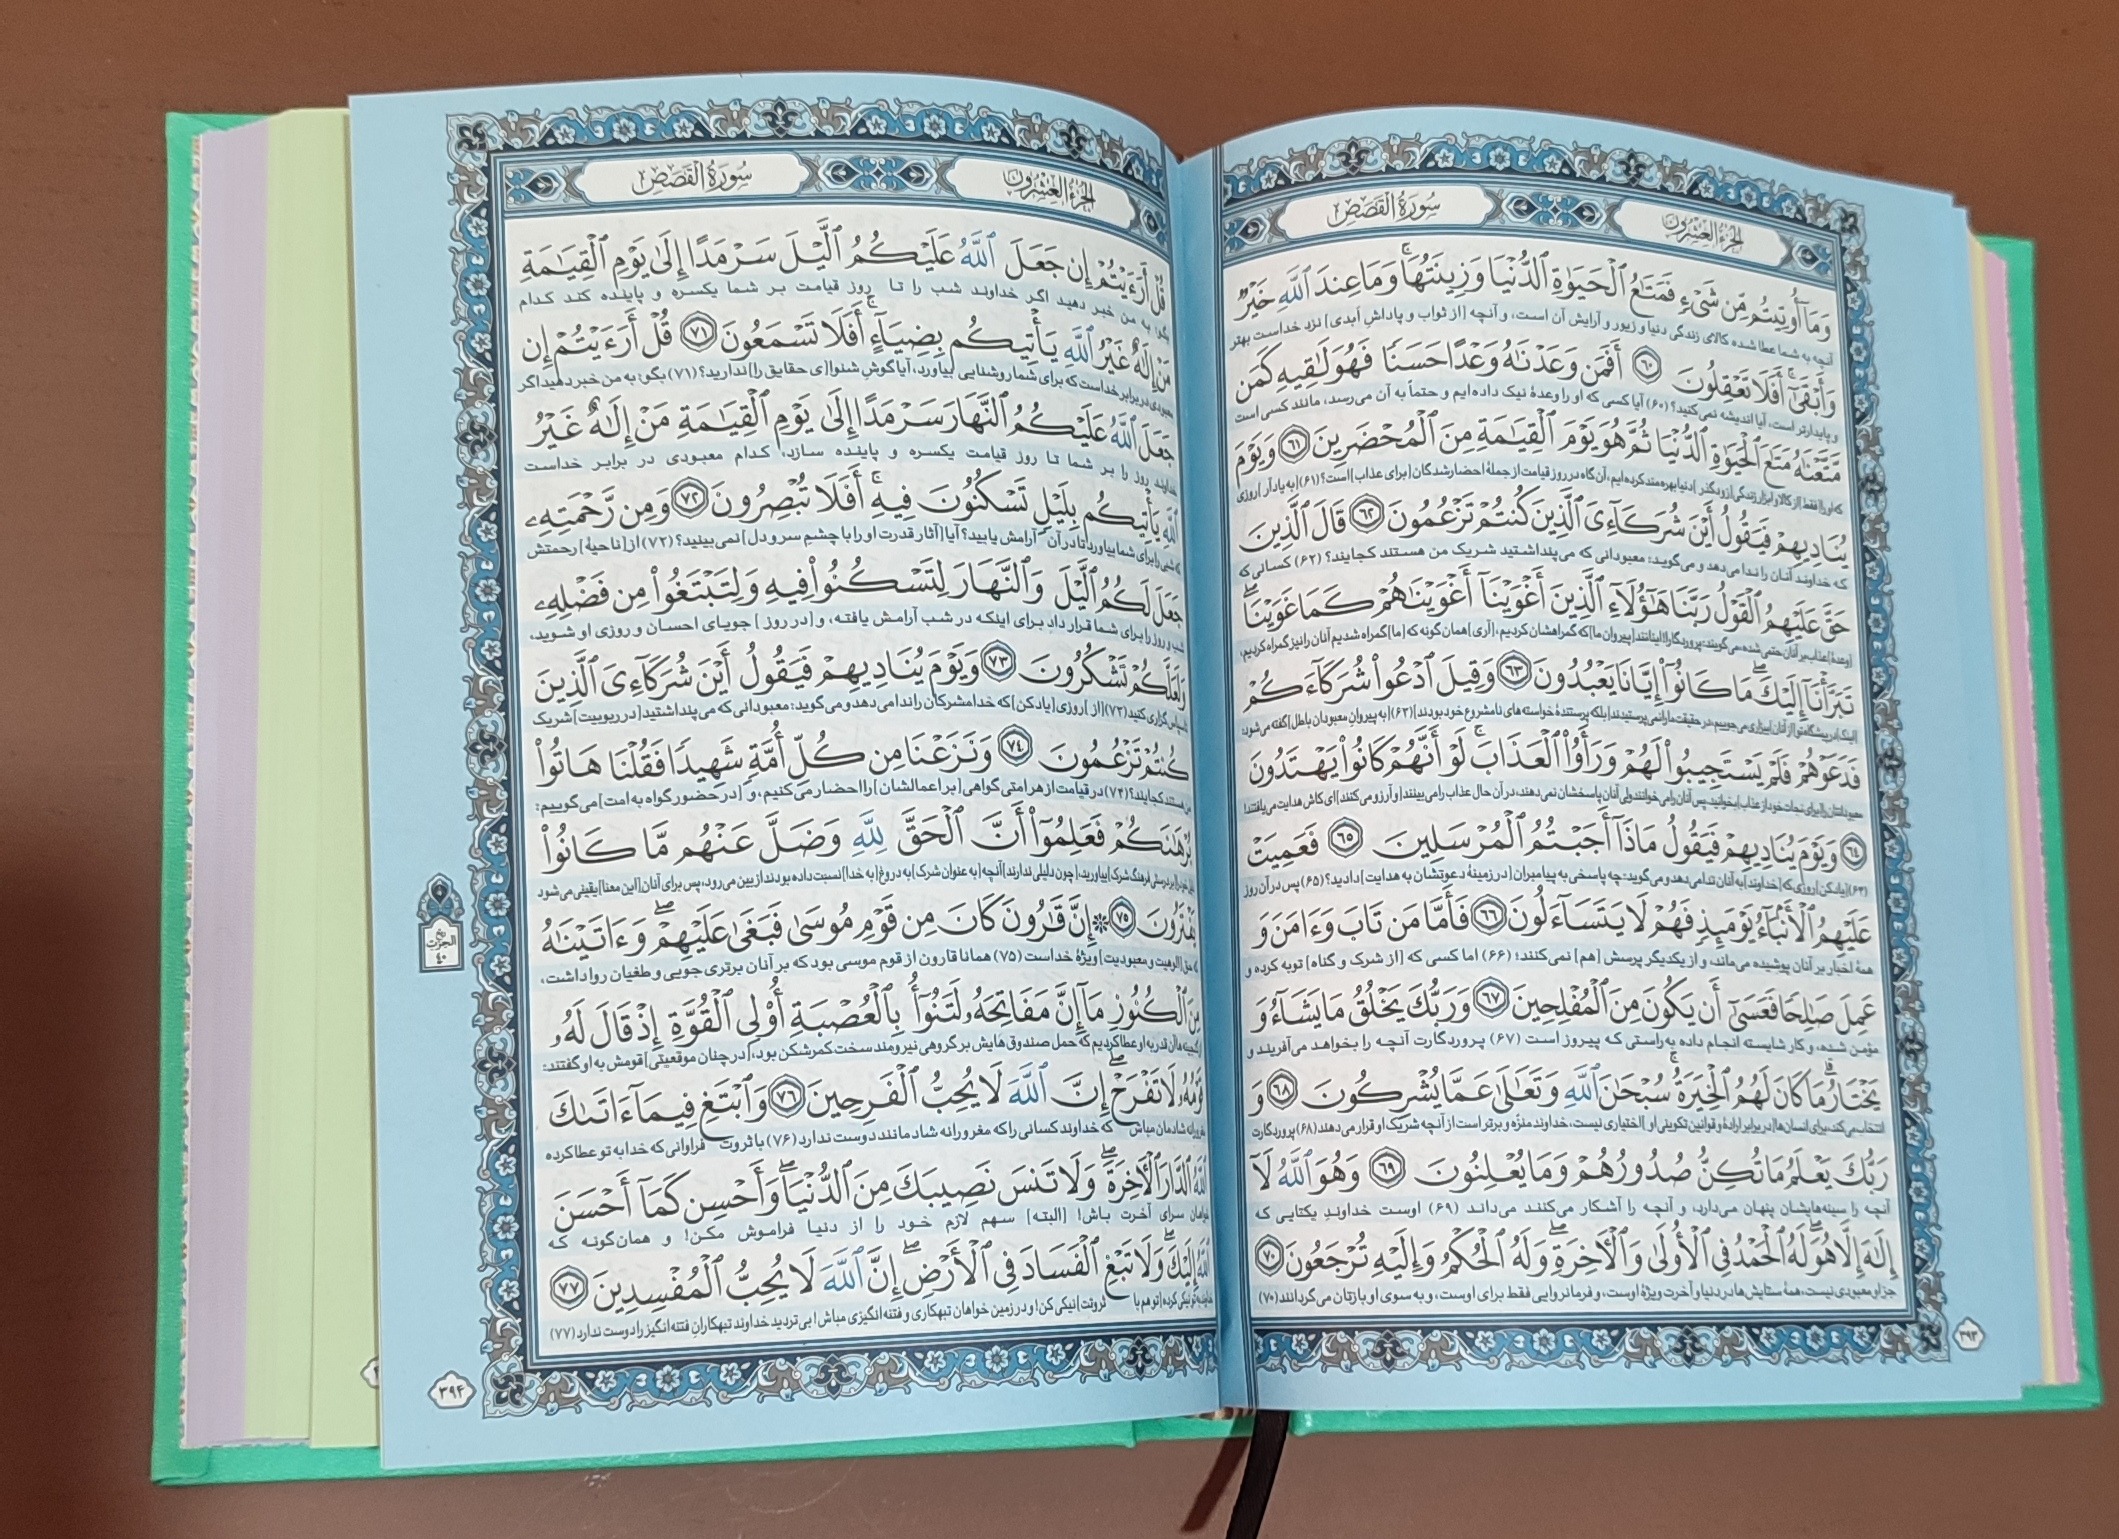 الجزء العشرون
سورة القصص
وَمَآ أُوتِيتُم مِّن شَىْءٍ فَمَتَـٰعُ ٱلْحَيَوٰةِ ٱلدُّنْيَا وَزِينَتُهَا ۚ وَمَا عِندَ ٱللَّهِ خَيْرٌ
آنچه به شما عطا شده کالای زندگی دنیا و زیور و آرایش آن است، و آنچه [از ثواب و پاداش اَبدی] نزد خداست بهتر
وَأَبْقَىٰٓ ۚ أَفَلَا تَعْقِلُونَ ۝٦٠ أَفَمَن وَعَدْنَـٰهُ وَعْدًا حَسَنًا فَهُوَ لَـٰقِيهِ كَمَن
و پایدارتر است، آیا اندیشه نمی‌کنید؟ (۶۰) آیا کسی که او را وعدهٔ نیک داده‌ایم و حتماً به آن می‌رسد، مانند کسی است
مَّتَّعْنَـٰهُ مَتَـٰعَ ٱلْحَيَوٰةِ ٱلدُّنْيَا ثُمَّ هُوَ يَوْمَ ٱلْقِيَـٰمَةِ مِنَ ٱلْمُحْضَرِينَ ۝٦١ وَيَوْمَ
که او را [فقط] از کالا و ابزار زندگیِ [زودگذر] دنیا بهره‌مند کرده‌ایم، آن گاه در روز قیامت از جملهٔ احضارشدگان [برای عذاب] است؟ (۶۱) [به یاد آر] روزی
يُنَادِيهِمْ فَيَقُولُ أَيْنَ شُرَكَآءِىَ ٱلَّذِينَ كُنتُمْ تَزْعُمُونَ ۝٦٢ قَالَ ٱلَّذِينَ
که خداوند آنان را ندا می‌دهد و می‌گوید: معبودانی که می‌پنداشتید شریک من هستند کجایند؟ (۶۲) کسانی که
حَقَّ عَلَيْهِمُ ٱلْقَوْلُ رَبَّنَا هَـٰٓؤُلَآءِ ٱلَّذِينَ أَغْوَيْنَآ أَغْوَيْنَـٰهُمْ كَمَا غَوَيْنَا ۖ
[وعدهٔ] عذاب بر آنان حتمی شده، می‌گویند: پروردگارا! اینانند [پیروان ما] که گمراهشان کردیم، [آری] همان گونه که [ما] گمراه شدیم آنان را نیز گمراه کردیم،
تَبَرَّأْنَآ إِلَيْكَ ۖ مَا كَانُوٓا۟ إِيَّانَا يَعْبُدُونَ ۝٦٣ وَقِيلَ ٱدْعُوا۟ شُرَكَآءَكُمْ
[اینک] در پیشگاه تو [از آنان] بیزاری می‌جوییم، در حقیقت ما را نمی‌پرستیدند [بلکه پرستندهٔ خواسته‌های نامشروع خود بودند] (۶۳) [به پیروانِ معبودان باطل] گفته می‌شود:
فَدَعَوْهُمْ فَلَمْ يَسْتَجِيبُوا۟ لَهُمْ وَرَأَوُا۟ ٱلْعَذَابَ ۚ لَوْ أَنَّهُمْ كَانُوا۟ يَهْتَدُونَ
معبودانتان را [برای نجات خود از عذاب] بخوانید، پس آنان را می‌خوانند ولی آنان پاسخشان نمی‌دهند، در آن حال عذاب را می‌بینند [و آرزو می‌کنند] ای کاش هدایت می‌یافتند!
۝٦٤ وَيَوْمَ يُنَادِيهِمْ فَيَقُولُ مَاذَآ أَجَبْتُمُ ٱلْمُرْسَلِينَ ۝٦٥ فَعَمِيَتْ
[یاد کن] روزی که [خداوند] به آنان ندا می‌دهد و می‌گوید: چه پاسخی به پیامبران [در زمینهٔ دعوتشان به هدایت] دادید؟ (۶۵) پس در آن روز
عَلَيْهِمُ ٱلْأَنۢبَآءُ يَوْمَئِذٍ فَهُمْ لَا يَتَسَآءَلُونَ ۝٦٦ فَأَمَّا مَن تَابَ وَءَامَنَ وَ
همهٔ اخبار بر آنان پوشیده می‌ماند، و از یکدیگر پرسش [هم] نمی‌کنند؛ (۶۶) اما کسی که [از شرک و گناه] توبه کرده و
عَمِلَ صَـٰلِحًا فَعَسَىٰٓ أَن يَكُونَ مِنَ ٱلْمُفْلِحِينَ ۝٦٧ وَرَبُّكَ يَخْلُقُ مَا يَشَآءُ وَ
مؤمن شده، و کار شایسته انجام داده به راستی که پیروز است (۶۷) پروردگارت آنچه را بخواهد می‌آفریند و
يَخْتَارُ ۗ مَا كَانَ لَهُمُ ٱلْخِيَرَةُ ۚ سُبْحَـٰنَ ٱللَّهِ وَتَعَـٰلَىٰ عَمَّا يُشْرِكُونَ ۝٦٨ وَ
انتخاب می‌کند، برای انسان‌ها [در برابر ارادهٔ و قوانین تکوینی او] اختیاری نیست، خداوند منزّه و برتر است از آنچه شریک او قرار می‌دهند (۶۸) پروردگارت
رَبُّكَ يَعْلَمُ مَا تُكِنُّ صُدُورُهُمْ وَمَا يُعْلِنُونَ ۝٦٩ وَهُوَ ٱللَّهُ لَآ
آنچه را سینه‌هایشان پنهان می‌دارد، و آنچه را آشکار می‌کنند می‌داند (۶۹) اوست خداوندِ یکتایی که
إِلَـٰهَ إِلَّا هُوَ ۖ لَهُ ٱلْحَمْدُ فِى ٱلْأُولَىٰ وَٱلْـَٔاخِرَةِ ۖ وَلَهُ ٱلْحُكْمُ وَإِلَيْهِ تُرْجَعُونَ ۝٧٠
جز او معبودی نیست، همهٔ ستایش‌ها در دنیا و آخرت ویژهٔ اوست، و فرمانروایی فقط برای اوست، و به سوی او بازتان می‌گردانند (۷۰)
۳۹۳
الجزء العشرون
سورة القصص
قُلْ أَرَءَيْتُمْ إِن جَعَلَ ٱللَّهُ عَلَيْكُمُ ٱلَّيْلَ سَرْمَدًا إِلَىٰ يَوْمِ ٱلْقِيَـٰمَةِ
بگو: به من خبر دهید اگر خداوند شب را تا روز قیامت بر شما یکسره و پاینده کند کدام
مَنْ إِلَـٰهٌ غَيْرُ ٱللَّهِ يَأْتِيكُم بِضِيَآءٍ ۖ أَفَلَا تَسْمَعُونَ ۝٧١ قُلْ أَرَءَيْتُمْ إِن
معبودی در برابر خداست که برای شما روشنایی بیاورد، آیا گوش شنوا[ی حقایق را] ندارید؟ (۷۱) بگو: به من خبر دهید اگر
جَعَلَ ٱللَّهُ عَلَيْكُمُ ٱلنَّهَارَ سَرْمَدًا إِلَىٰ يَوْمِ ٱلْقِيَـٰمَةِ مَنْ إِلَـٰهٌ غَيْرُ
خداوند روز را بر شما تا روز قیامت یکسره و پاینده سازد، کدام معبودی در برابر خداست
ٱللَّهِ يَأْتِيكُم بِلَيْلٍ تَسْكُنُونَ فِيهِ ۖ أَفَلَا تُبْصِرُونَ ۝٧٢ وَمِن رَّحْمَتِهِۦ
که شبی را برای شما بیاورد تا در آن آرامش یابید؟ آیا [آثار قدرت او را با چشمِ سر و دل] نمی‌بینید؟ (۷۲) از [ناحیهٔ] رحمتش
جَعَلَ لَكُمُ ٱلَّيْلَ وَٱلنَّهَارَ لِتَسْكُنُوا۟ فِيهِ وَلِتَبْتَغُوا۟ مِن فَضْلِهِۦ
شب و روز را برای شما قرار داد برای اینکه در شب آرامش یافته، و [در روز] جویای احسان و روزی او شوید،
وَلَعَلَّكُمْ تَشْكُرُونَ ۝٧٣ وَيَوْمَ يُنَادِيهِمْ فَيَقُولُ أَيْنَ شُرَكَآءِىَ ٱلَّذِينَ
سپاس گزاری کنید (۷۳) [از] روزی [یاد کن] که خدا مشرکان را ندا می‌دهد و می‌گوید: معبودانی که می‌پنداشتید [در ربوبیت] شریک
كُنتُمْ تَزْعُمُونَ ۝٧٤ وَنَزَعْنَا مِن كُلِّ أُمَّةٍ شَهِيدًا فَقُلْنَا هَاتُوا۟
من هستند کجایند؟ (۷۴) در قیامت از هر امتی گواهی [بر اعمالشان] را احضار می‌کنیم، و [در حضور گواه به امت] می‌گوییم:
بُرْهَـٰنَكُمْ فَعَلِمُوٓا۟ أَنَّ ٱلْحَقَّ لِلَّهِ وَضَلَّ عَنْهُم مَّا كَانُوا۟
[بر درستی فرهنگ شرک] بیاورید، [چون دلیلی ندارند] آنچه [به عنوان شرک] به دروغ [به خدا] نسبت داده بودند از بین می‌رود، پس برای آنان [این معنا] یقینی می‌شود
يَفْتَرُونَ ۝٧٥ ۞ إِنَّ قَـٰرُونَ كَانَ مِن قَوْمِ مُوسَىٰ فَبَغَىٰ عَلَيْهِمْ ۖ وَءَاتَيْنَـٰهُ
که حق [الوهیت و معبودیت] ویژهٔ خداست (۷۵) همانا قارون از قوم موسی بود که بر آنان برتری جویی و طغیان روا داشت،
مِنَ ٱلْكُنُوزِ مَآ إِنَّ مَفَاتِحَهُۥ لَتَنُوٓأُ بِٱلْعُصْبَةِ أُو۟لِى ٱلْقُوَّةِ إِذْ قَالَ لَهُۥ
از گنجینه‌ها آن قدر به او عطا کردیم که حمل صندوق‌هایش بر گروهی نیرومند سخت کمرشکن بود، [در چنان موقعیتی] قومش به او گفتند:
قَوْمُهُۥ لَا تَفْرَحْ ۖ إِنَّ ٱللَّهَ لَا يُحِبُّ ٱلْفَرِحِينَ ۝٧٦ وَٱبْتَغِ فِيمَآ ءَاتَىٰكَ
مغرورانه شادمان مباش که خداوند کسانی را که مغرورانه شادمانند دوست ندارد (۷۶) با ثروت فراوانی که خدا به تو عطا کرده
ٱللَّهُ ٱلدَّارَ ٱلْـَٔاخِرَةَ ۖ وَلَا تَنسَ نَصِيبَكَ مِنَ ٱلدُّنْيَا ۖ وَأَحْسِن كَمَآ أَحْسَنَ
خواهان سرای آخرت باش! [البته] سهم لازم خود را از دنیا فراموش مکن! و همان‌گونه که
ٱللَّهُ إِلَيْكَ ۖ وَلَا تَبْغِ ٱلْفَسَادَ فِى ٱلْأَرْضِ ۖ إِنَّ ٱللَّهَ لَا يُحِبُّ ٱلْمُفْسِدِينَ ۝٧٧
خداوند به تو نیکی کرده [تو هم با ثروتت] نیکی کن! و در زمین خواهان تبهکاری و فتنه انگیزی مباش! بی‌تردید خداوند تبهکارانِ فتنه انگیز را دوست ندارد (۷۷)
الحزب
٤٠
۳۹۴